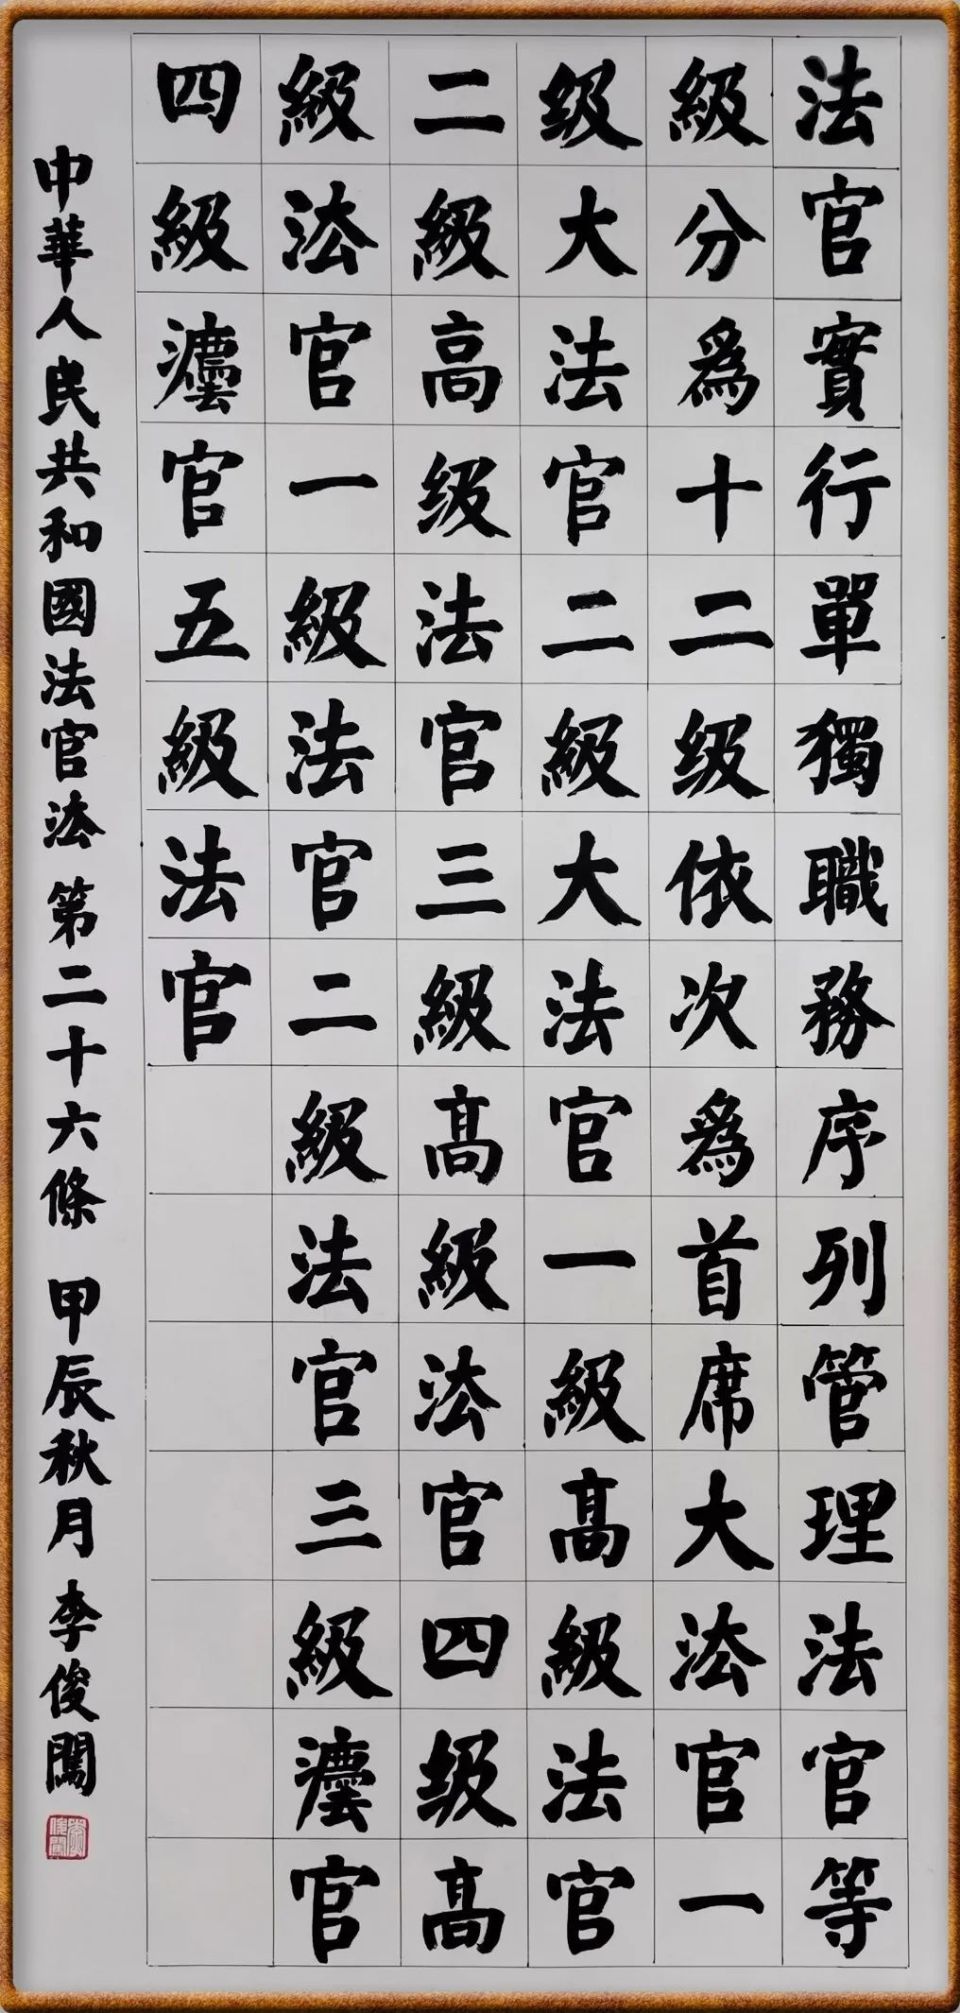 法官實行單獨職務序列管理法官等
級分爲十二级依次爲首席大法官一
级大法官二級大法官一級高級法官
二級高级法官三級高級法官四级高
級法官一級法官二級法官三級灋官
四級灋官五級法官
中華人民共和國法官法 第二十六條 甲辰秋月 李俊闖